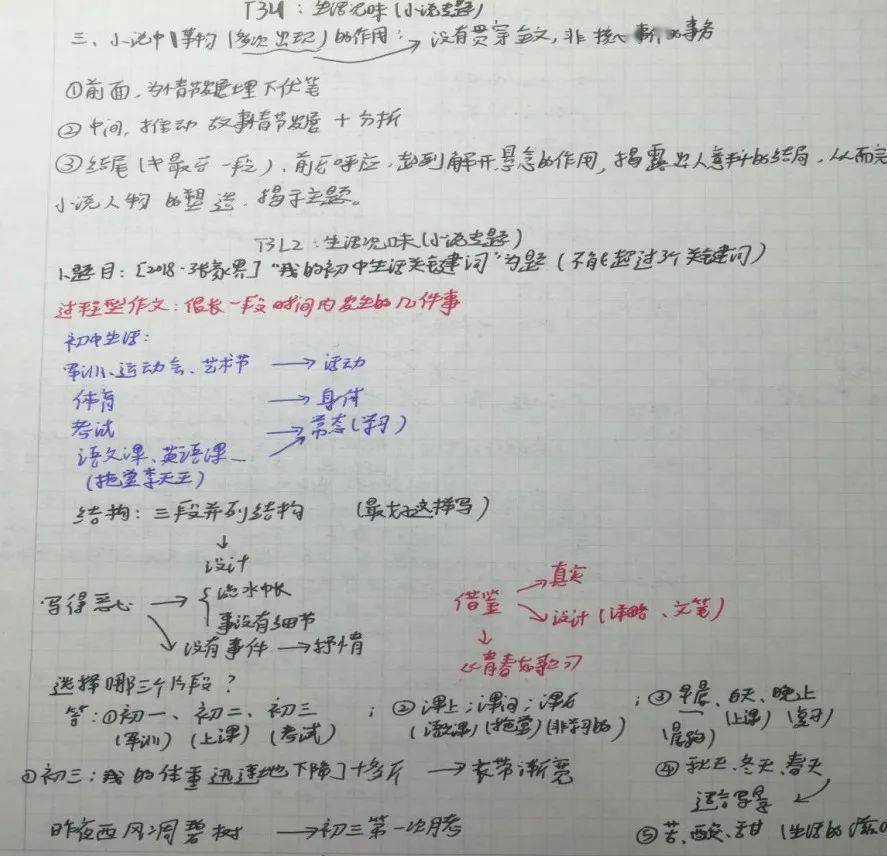 T3L1：生活况味(小说专题)
三、小说中1事物(多次出现)的作用：→没有贯穿全文，非核心
①前面，为情节发展埋下伏笔
②中间，推动故事情节发展 + 分析
③结尾(也最后一段)，前后呼应，起到解开悬念的作用，揭露出人意料的结局，从而完
小说人物的塑造，揭示主题。
T3L2：生活况味(小说专题)
1.题目：[2018·张家界]“我的初中生活关键词”为题(不能超过3个关键词)
过程型作文：很长一段时间内发生的几件事
初中生活：
军训、运动会、艺术节 → 活动
体育 → 身体
考试 → 常态(学习)
语文课、英语课
(拖堂李天王)
结构：三段并列结构 (最好这样写)
↓
设计
写得恶心 → { 流水账
事没有细节
→ 没有事件 → 抒情
借鉴 → 真实
→ 设计(详略、文笔)
↓
《青春
选择哪三个片段？
答：①初一、初二、初三；②课上；课间；课后；③早晨、白天、晚上
(军训)(上课)(考试) (拖堂) (晨跑) (上课)
①初三：我的体重迅速地下降了十多斤 → 衣带渐宽 ④秋天、冬天、春天
适合写景
昨夜西风凋碧树 → 初三第一次月考 ⑤苦、酸、甜(生活的滋